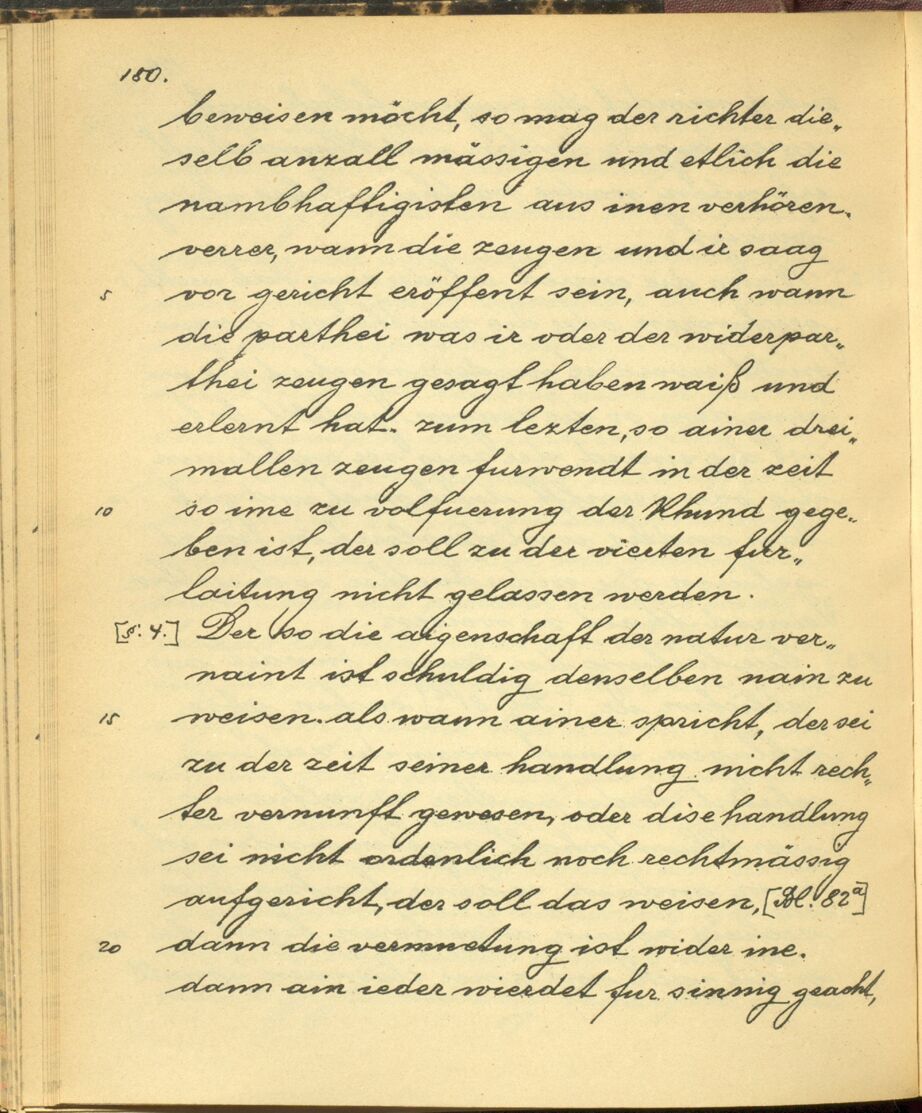 180.
beweisen möcht, so mag der richter die„
selb anzall mässigen und etlich die
nambhaftigisten aus inen verhören.
verrer, wann die zeugen und ir saag
5 vor gericht eröffent sein, auch wann
die parthei was ir oder der widerpar„
thei zeugen gesagt haben waiß und
erlernt hat. zum lezten, so ainer drei„
mallen zeugen furwendt in der zeit
10 so ime zu volfuerung der Khund gege„
ben ist, der soll zu der vierten fur„
laitung nicht gelassen werden.
[§. 4.] Der so die aigenschaft der natur ver„
naint ist schuldig denselben nain zu
15 weisen. als wann ainer spricht, der sei
zu der zeit seiner handlung nicht rech„
ter vernunft gewesen, oder dise handlung
sei nicht ordenlich noch rechtmässig
aufgericht, der soll das weisen, [Bl. 82a]
20 dann die vermuetung ist wider ine.
dann ain ieder wierdet fur sinnig geacht,